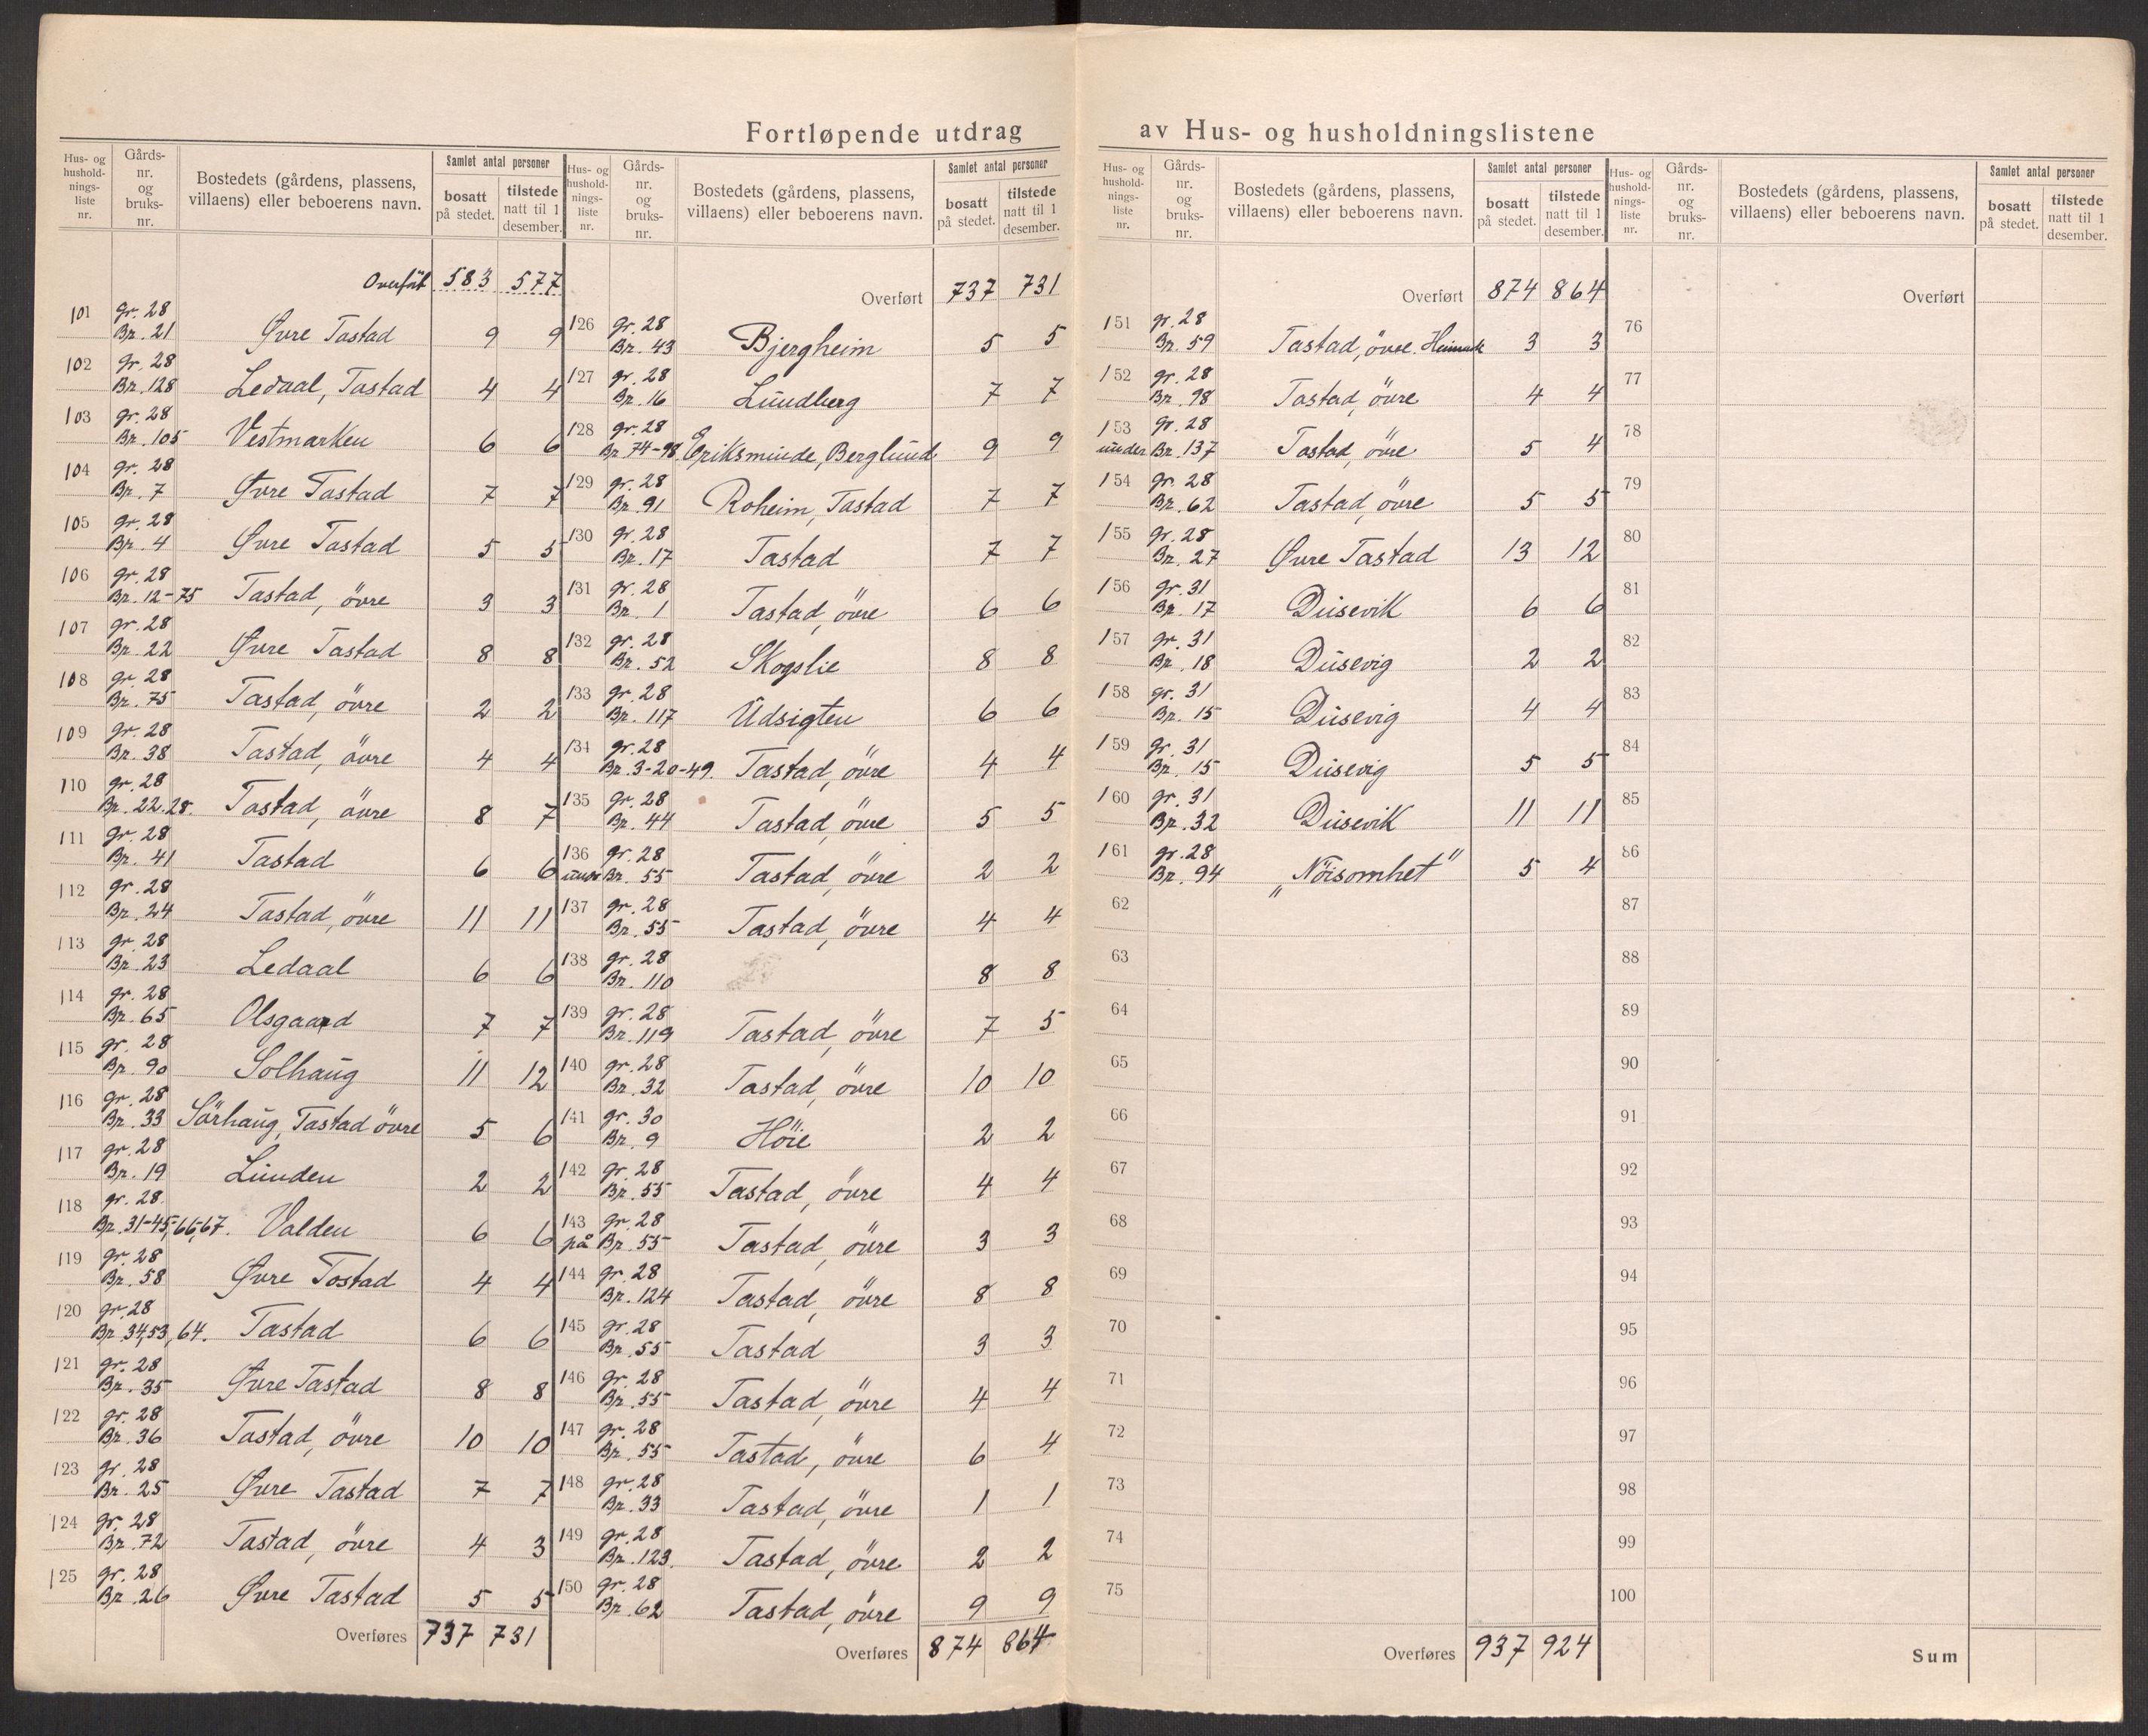 Fortløpende utdrag av Hus- og husholdningslistene
Hus- og hushold-nings-liste nr. Gårds-nr. og bruks-nr. Bostedets (gårdens, plassens, villaens) eller beboerens navn. Samlet antal personer bosatt på stedet. tilstede natt til 1 desember.
Overført 583 577
101 gr. 28 Br. 21 Øvre Tastad 9 9
102 gr. 28 Br. 128 Ledaal, Tastad 4 4
103 gr. 28 Br. 105 Vestmarken 6 6
104 gr. 28 Br. 7 Øvre Tastad 7 7
105 gr. 28 Br. 4 Øvre Tastad 5 5
106 gr. 28 Br. 12-75 Tastad, övre 3 3
107 gr. 28 Br. 22 Øvre Tastad 8 8
108 gr. 28 Br. 75 Tastad, övre 2 2
109 gr. 28 Br. 38 Tastad, övre 4 4
110 gr. 28 Br. 22.28. Tastad, övre 8 7
111 gr. 28 Br. 41 Tastad 6 6
112 gr. 28 Br. 24 Tastad, övre 11 11
113 gr. 28 Br. 23 Ledaal 6 6
114 gr. 28 Br. 65 Olsgaard 7 7
115 gr. 28 Br. 90 Solhaug 11 12
116 gr. 28 Br. 33 Sörhaug, Tastad övre 5 6
117 gr. 28 Br. 19 Lunden 2 2
118 gr. 28. Br. 31-45,66,67. Valden 6 6
119 gr. 28 Br. 58 Øvre Tastad 4 4
120 gr. 28 Br. 34,53,64. Tastad 6 6
121 gr. 28 Br. 35 Øvre Tastad 8 8
122 gr. 28 Br. 36 Tastad, övre 10 10
123 gr. 28 Br. 25 Øvre Tastad 7 7
124 gr. 28 Br. 72 Tastad, övre 4 3
125 gr. 28 Br. 26 Øvre Tastad 5 5
Overføres 737 731
Hus- og hushold-nings-liste nr. Gårds-nr. og bruks-nr. Bostedets (gårdens, plassens, villaens) eller beboerens navn. Samlet antal personer bosatt på stedet. tilstede natt til 1 desember.
Overført 737 731
126 gr. 28 Br. 43 Bjergheim 5 5
127 gr. 28 Br. 16 Lundberg 7 7
128 gr. 28 Br. 74-98. Eriksminde, Berglund 9 9
129 gr. 28 Br. 91 Roheim, Tastad 7 7
130 gr. 28 Br. 17 Tastad 7 7
131 gr. 28 Br. 1 Tastad, övre 6 6
132 gr. 28 Br. 52 Skogslie 8 8
133 gr. 28 Br. 117 Udsigten 6 6
134 gr. 28 Br. 3-20-49. Tastad, övre 4 4
135 gr. 28 Br. 44 Tastad, övre 5 5
136 under gr. 28 Br. 55 Tastad, övre 2 2
137 gr. 28 Br. 55 Tastad, övre 4 4
138 gr. 28 Br. 110 8 8
139 gr. 28 Br. 119 Tastad, övre 7 5
140 gr. 28 Br. 32 Tastad, övre 10 10
141 gr. 30 Br. 9 Höie 2 2
142 gr. 28 Br. 55 Tastad, övre 4 4
143 på gr. 28 Br. 55 Tastad, övre 3 3
144 gr. 28 Br. 124 Tastad, övre 8 8
145 gr. 28 Br. 55 Tastad 3 3
146 gr. 28 Br. 55 Tastad, övre 4 4
147 gr. 28 Br. 55 Tastad, övre 6 4
148 gr. 28 Br. 33 Tastad, övre 1 1
149 gr. 28 Br. 123. Tastad, övre 2 2
150 gr. 28 Br. 62 Tastad, övre 9 9
Overføres 874 864
Hus- og hushold-nings-liste nr. Gårds-nr. og bruks-nr. Bostedets (gårdens, plassens, villaens) eller beboerens navn. Samlet antal personer bosatt på stedet. tilstede natt til 1 desember.
Overført 874 864
151 gr. 28 Br. 59 Tastad, övre. 3 3
152 gr. 28 Br. 98 Tastad, övre 4 4
153 under gr. 28 Br. 137 Tastad, övre 5 4
154 gr. 28 Br. 62 Tastad, övre 5 5
155 gr. 28 Br. 27 Øvre Tastad 13 12
156 gr. 31 Br. 17 Dusevik 6 6
157 gr. 31 Br. 18 Dusevig 2 2
158 gr. 31 Br. 15 Dusevig 4 4
159 gr. 31 Br. 15 Dusevig 5 5
160 gr. 31 Br. 32 Dusevik 11 11
161 gr. 28 Br. 94 „Nöisomhet" 5 4
62
63
64
65
66
67
68
69
70
71
72
73
74
75
Overføres 937 924
Hus- og hushold-nings-liste nr. Gårds-nr. og bruks-nr. Bostedets (gårdens, plassens, villaens) eller beboerens navn. Samlet antal personer bosatt på stedet. tilstede natt til 1 desember.
Overført
76
77
78
79
80
81
82
83
84
85
86
87
88
89
90
91
92
93
94
95
96
97
98
99
100
Sum